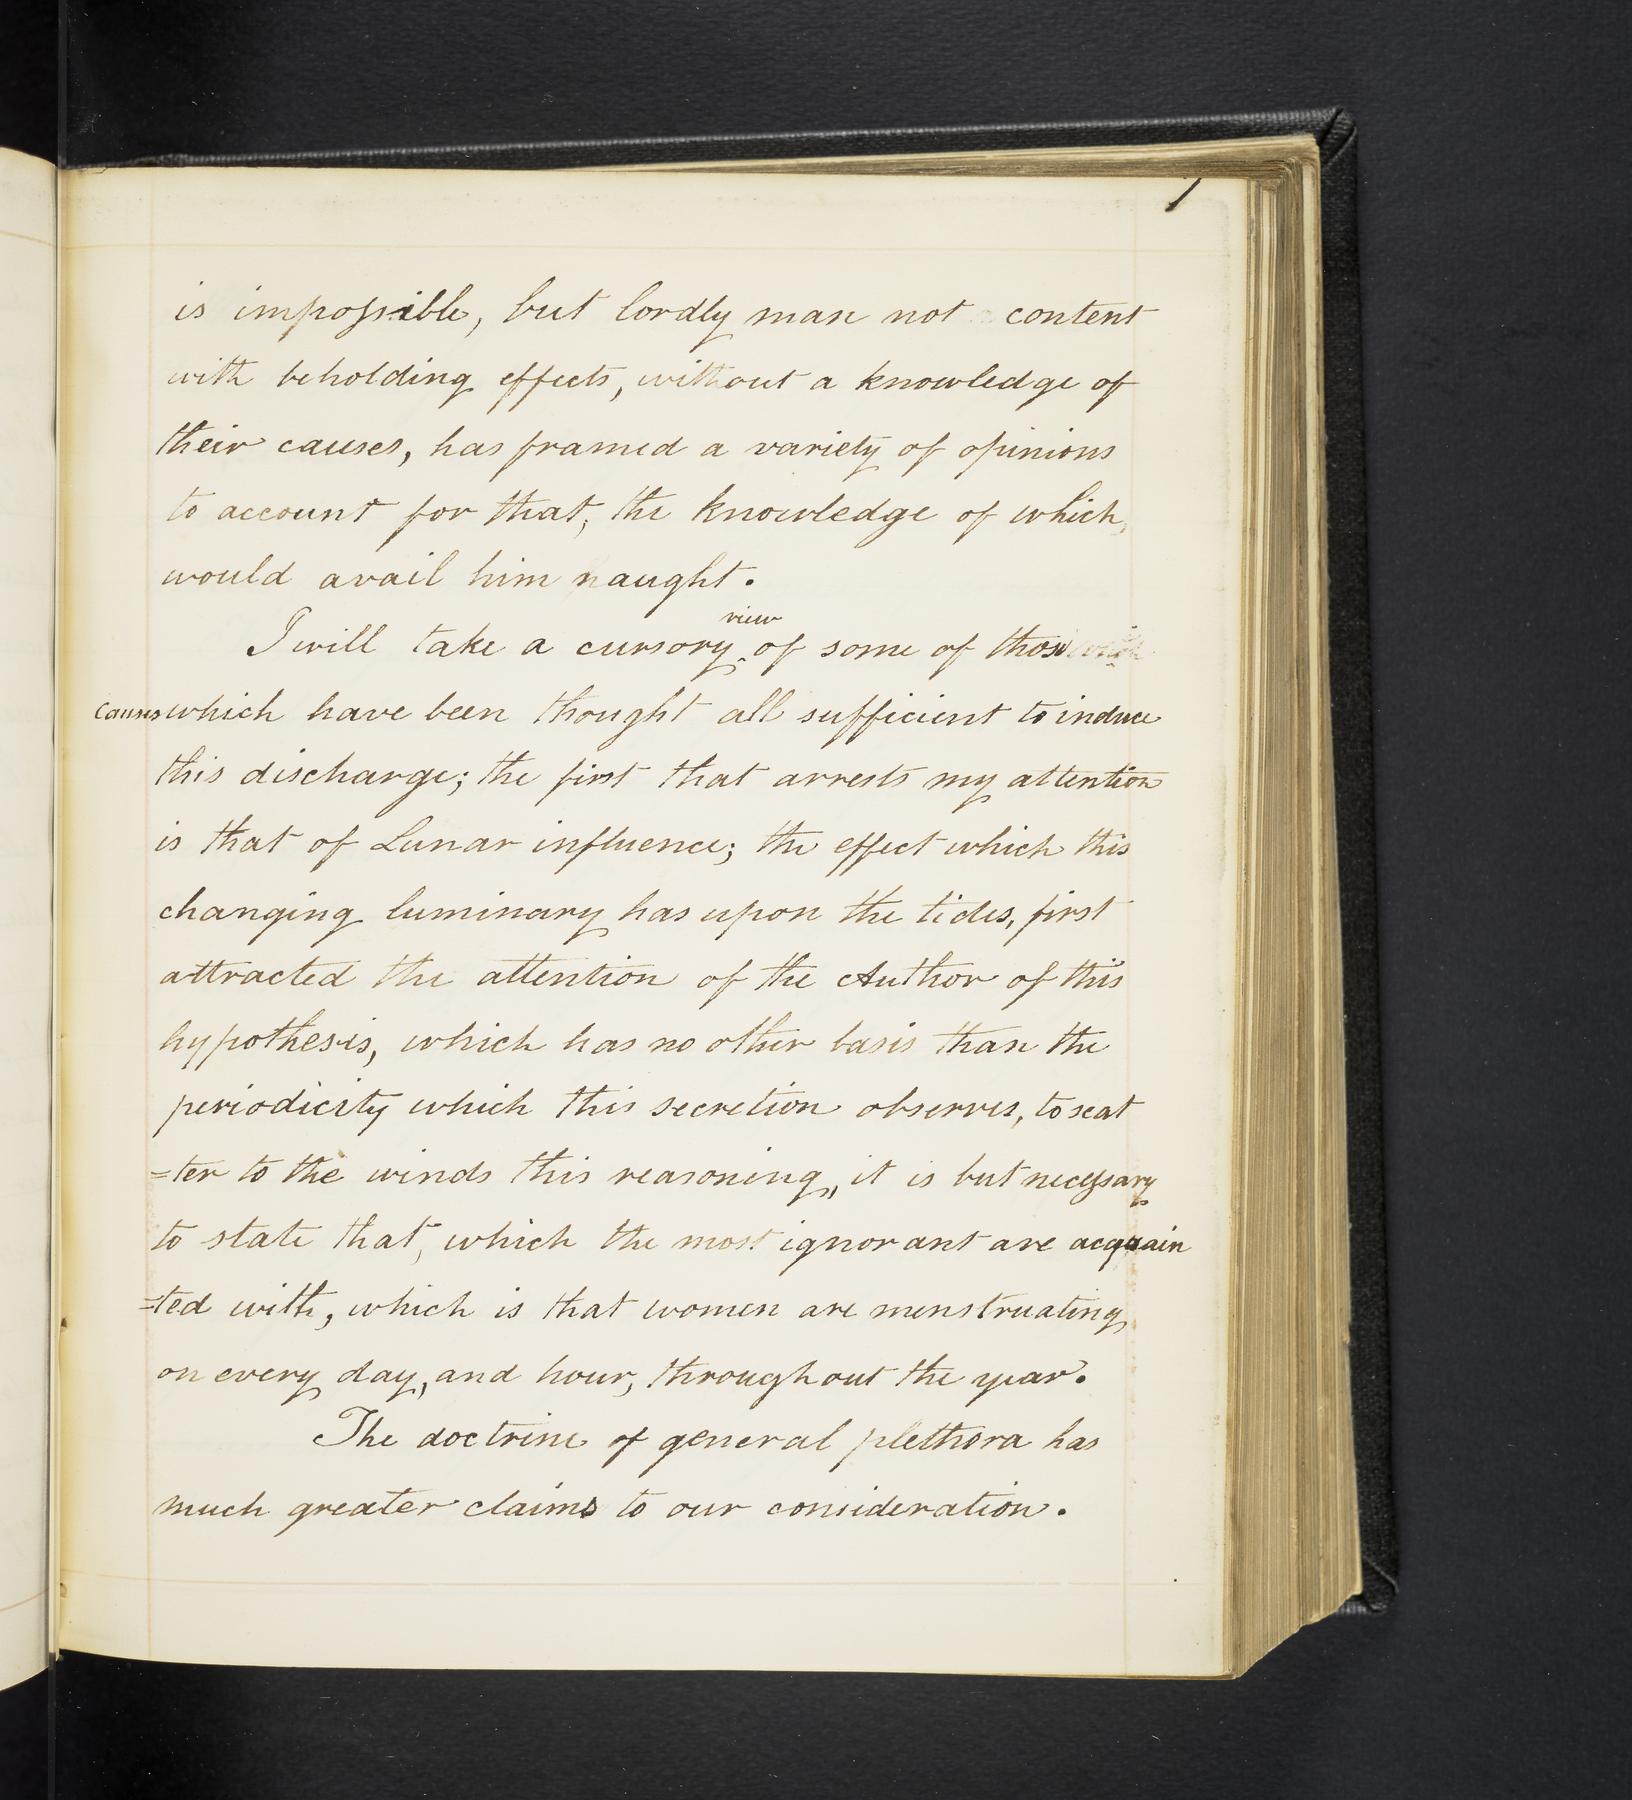 1
is impossible, but lordly man not content
with beholding effects, without a knowledge of
their causes, has framed a variety of opinions
to account for that, the knowledge of which,
would avail him naught.
view
I will take a cursory ‸ of some of those
causes which have been thought all sufficient to induce
this discharge; the first that arrests my attention
is that of Lunar influence; the effect which this
changing luminary has upon the tides, first
attracted the attention of the Author of this
hypothesis, which has no other basis than the
periodicity which this secretion observes, to scat
=ter to the winds this reasoning, it is but necessary
to state that, which the most ignorant are acquain
=ted with, which is that women are menstruating
on every day, and hour, throughout the year.
The doctrine of general plethora has
much greater claims to our consideration.